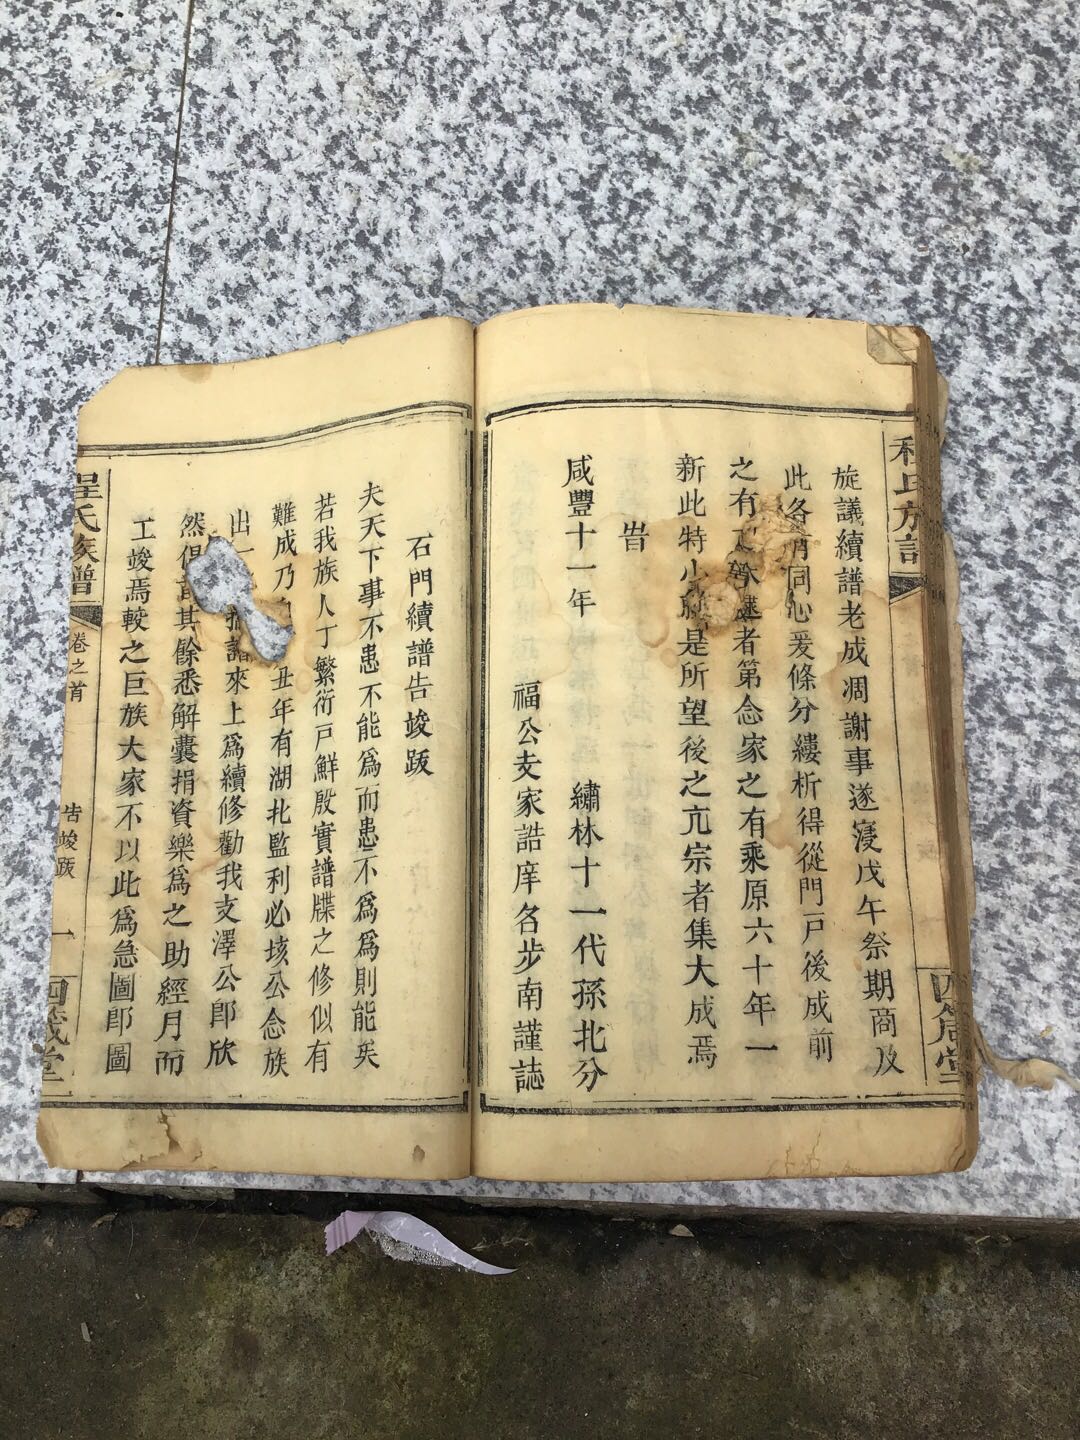 程氏族譜
四箴堂
旋議續譜老成凋謝事遂寖戊午祭期商及
此各 同心爰條分縷析得從門戸後成前
之有 者第念家之有乘原六十年一
新此特小 是所望後之亢宗者集大成焉
旹
咸豐十一年 繡林十一代孫北分
福公支家誥庠名步南謹誌
石門續譜告竣跋
夫天下事不患不能爲而患不爲爲則能矣
若我族人丁繁衍戸鮮殷實譜牒之修似有
難成乃 丑年有湖北監利必垓公念族
出 譜來上爲續修勸我支澤公卽欣
然 其餘悉解囊捐資樂爲之助經月而
工竣焉較之巨族大家不以此爲急圖卽圖
程氏族譜
卷之首
告竣跋
一
四箴堂